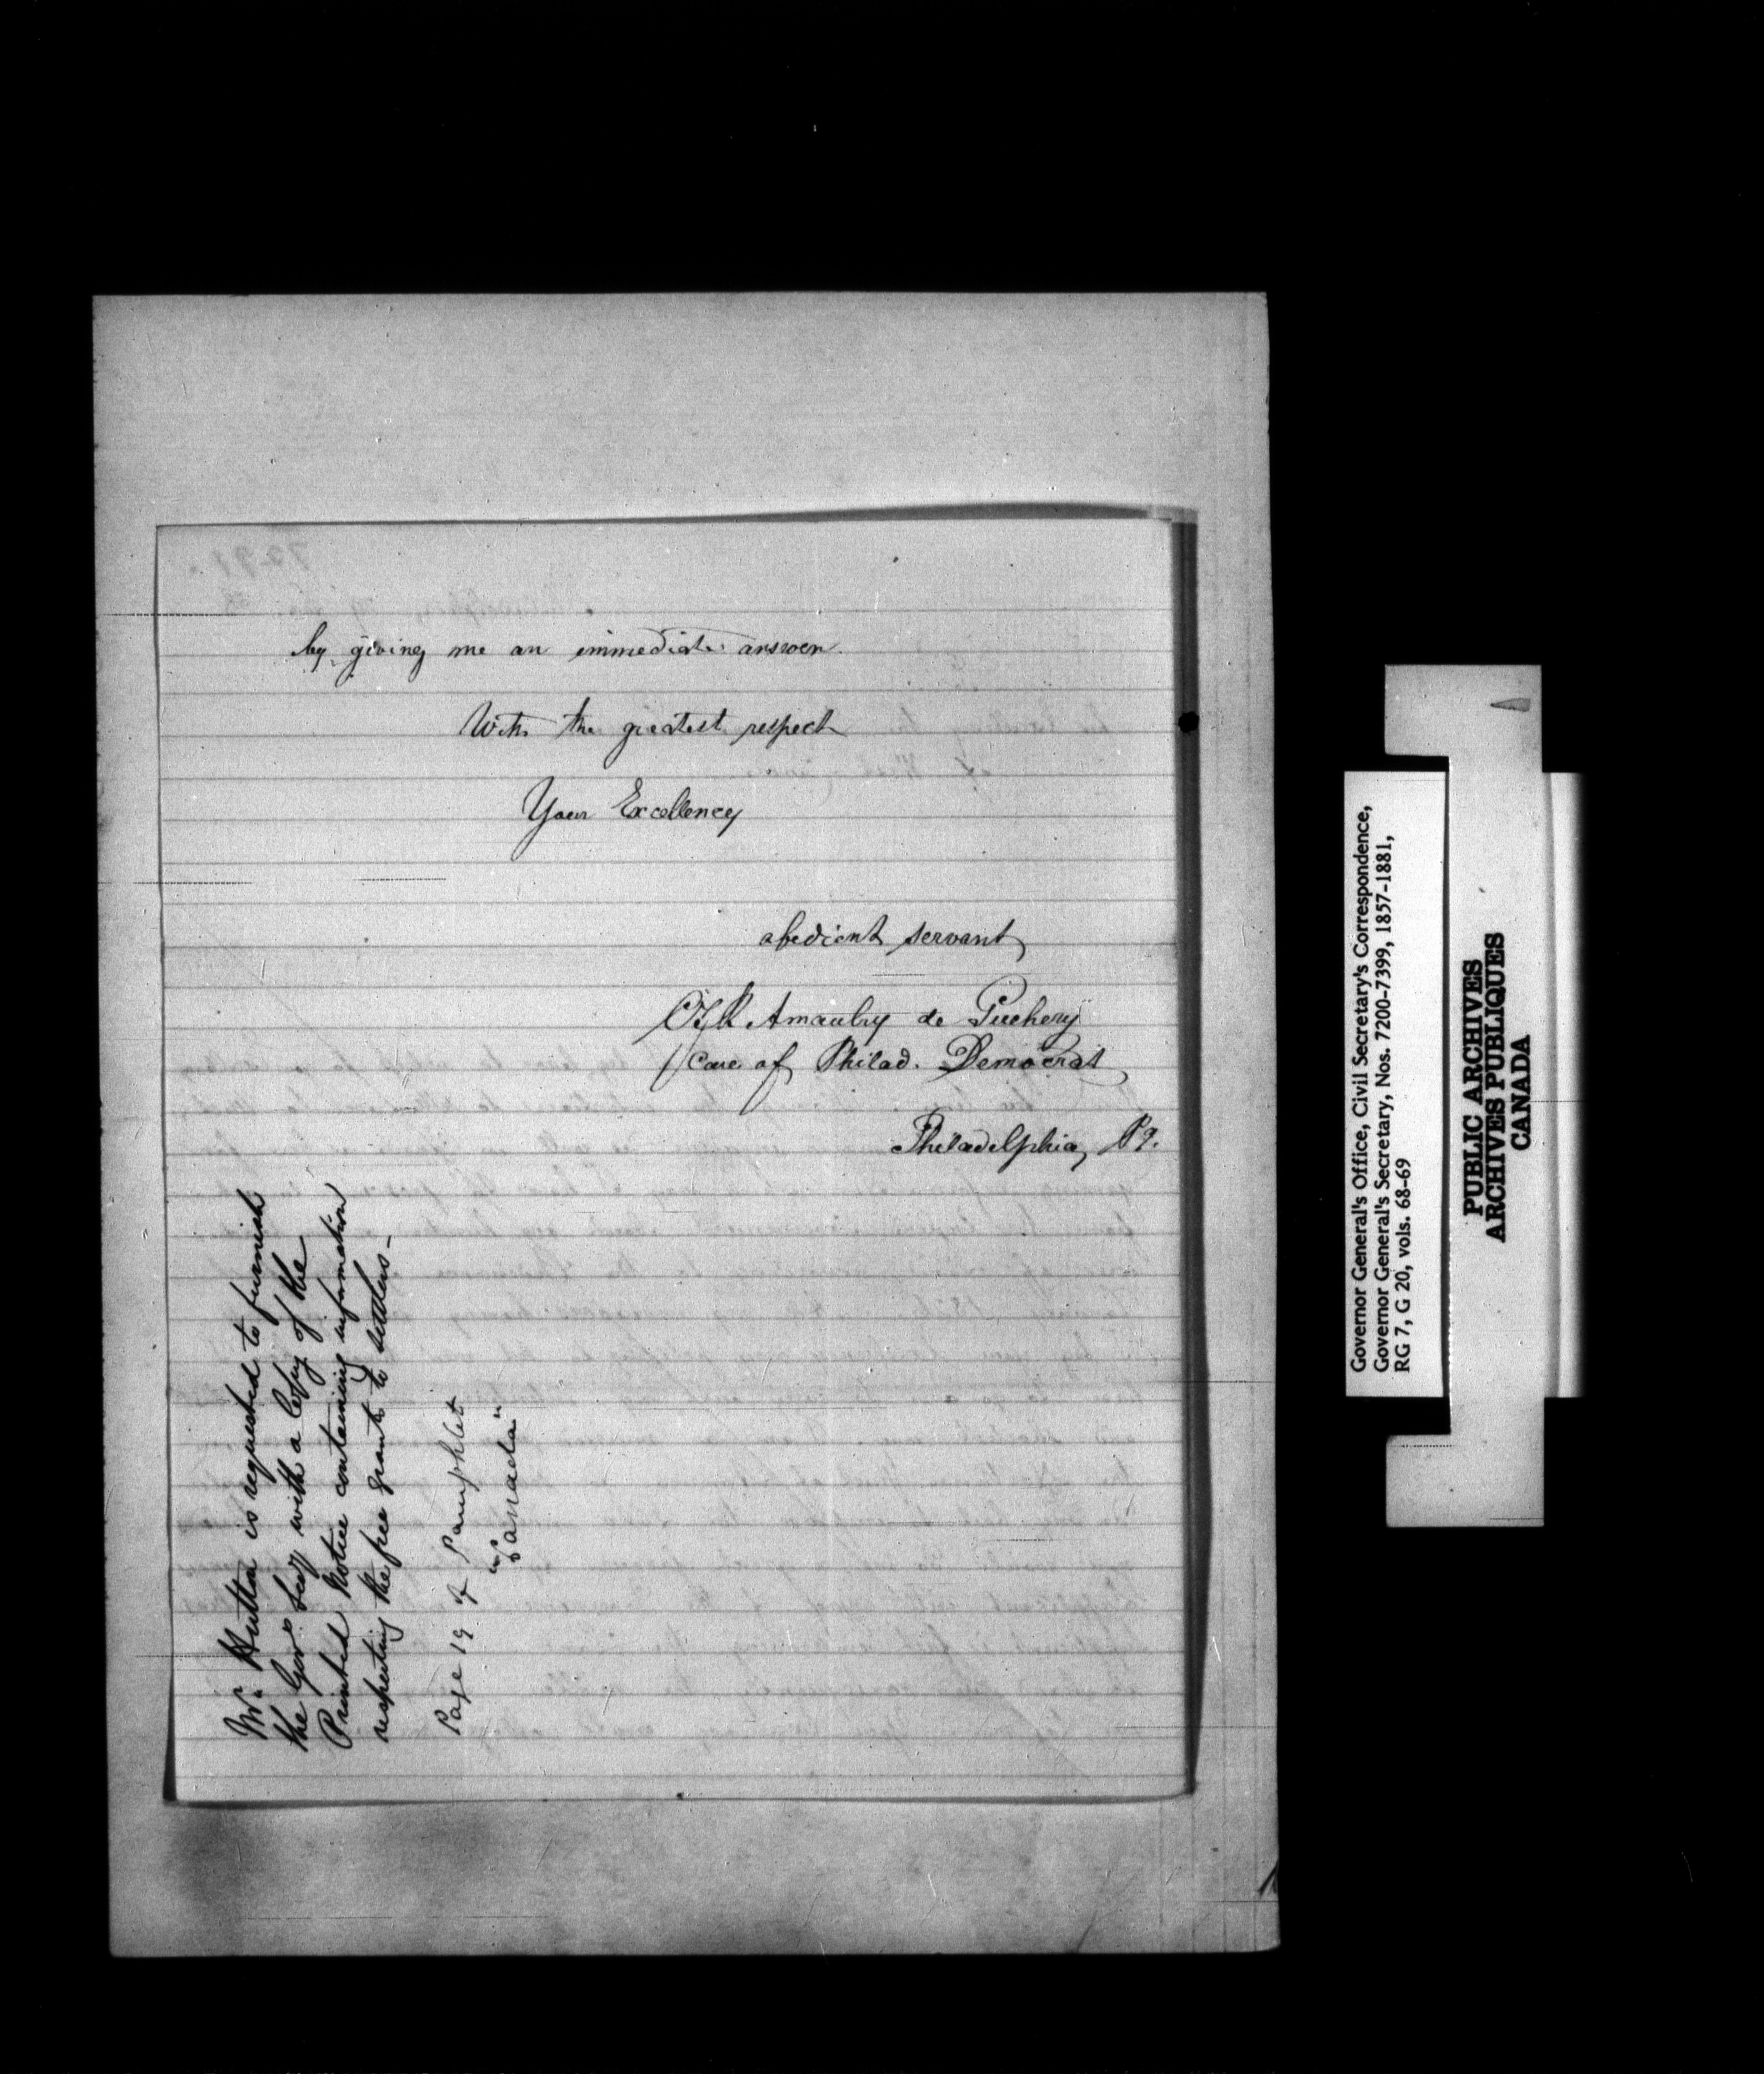 by giving me an immediate answer.
With the greatest respect
Your Excellency
obedient servant
Amaulry de Puchery
Care of Philad. Democrat
Philadelphia, Pa.
Mr. Hutton is requested to furnish
the Govr's Secy with a Copy of the
Printed Notice containing information
respecting the free grants to settlers-
Page 19 of Pamphlet
"Canada"
Governor General's Office, Civil Secretary's Correspondence,
Governor General's Secretary, Nos. 7200-7399, 1857-1881,
RG 7, G 20, vols. 68-69
PUBLIC ARCHIVES
ARCHIVES PUBLIQUES
CANADA